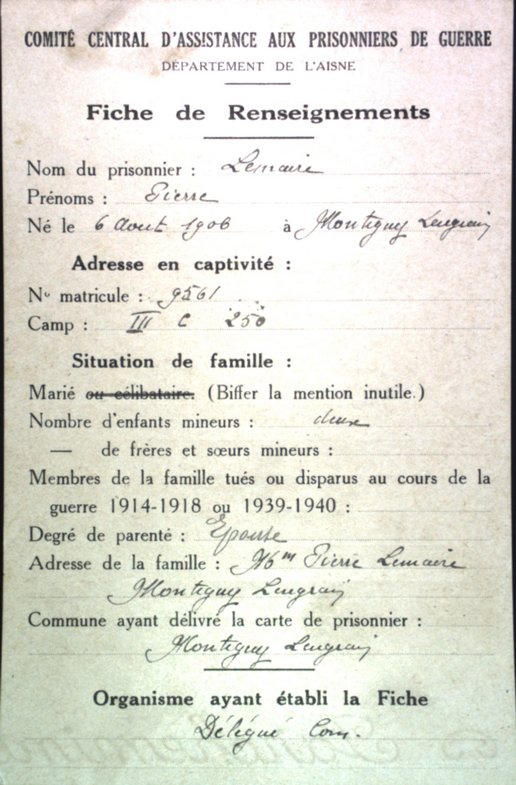 COMITÉ CENTRAL D'ASSISTANCE AUX PRISONNIERS DE GUERRE
DÉPARTEMENT DE L'AISNE
Fiche de Renseignements
Nom du prisonnier : Lemaire
Prénoms : Pierre
Né le 6 Aout 1906 à Montigny Lengrain
Adresse en captivité :
No matricule : 9561
Camp : III C 250
Situation de famille :
Marié ou célibataire. (Biffer la mention inutile.)
Nombre d'enfants mineurs : deux
— de frères et sœurs mineurs :
Membres de la famille tués ou disparus au cours de la
guerre 1914-1918 ou 1939-1940 :
Degré de parenté : Epouse
Adresse de la famille : Mme Pierre Lemaire
Montigny Lengrain
Commune ayant délivré la carte de prisonnier :
Montigny Lengrain
Organisme ayant établi la Fiche
Délégué Com.